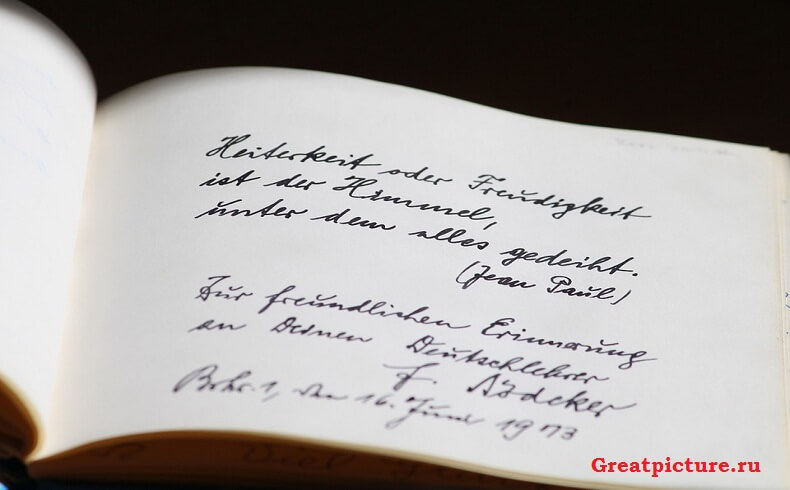 Heiterkeit oder Freudigkeit
ist der Himmel,
unter dem alles gedeiht.
(Jean Paul)
Zur freundlichen Erinnerung
an Deinen Deutschlehrer
F. Rödeker
den 16. Juni 1973
Greatpicture.ru